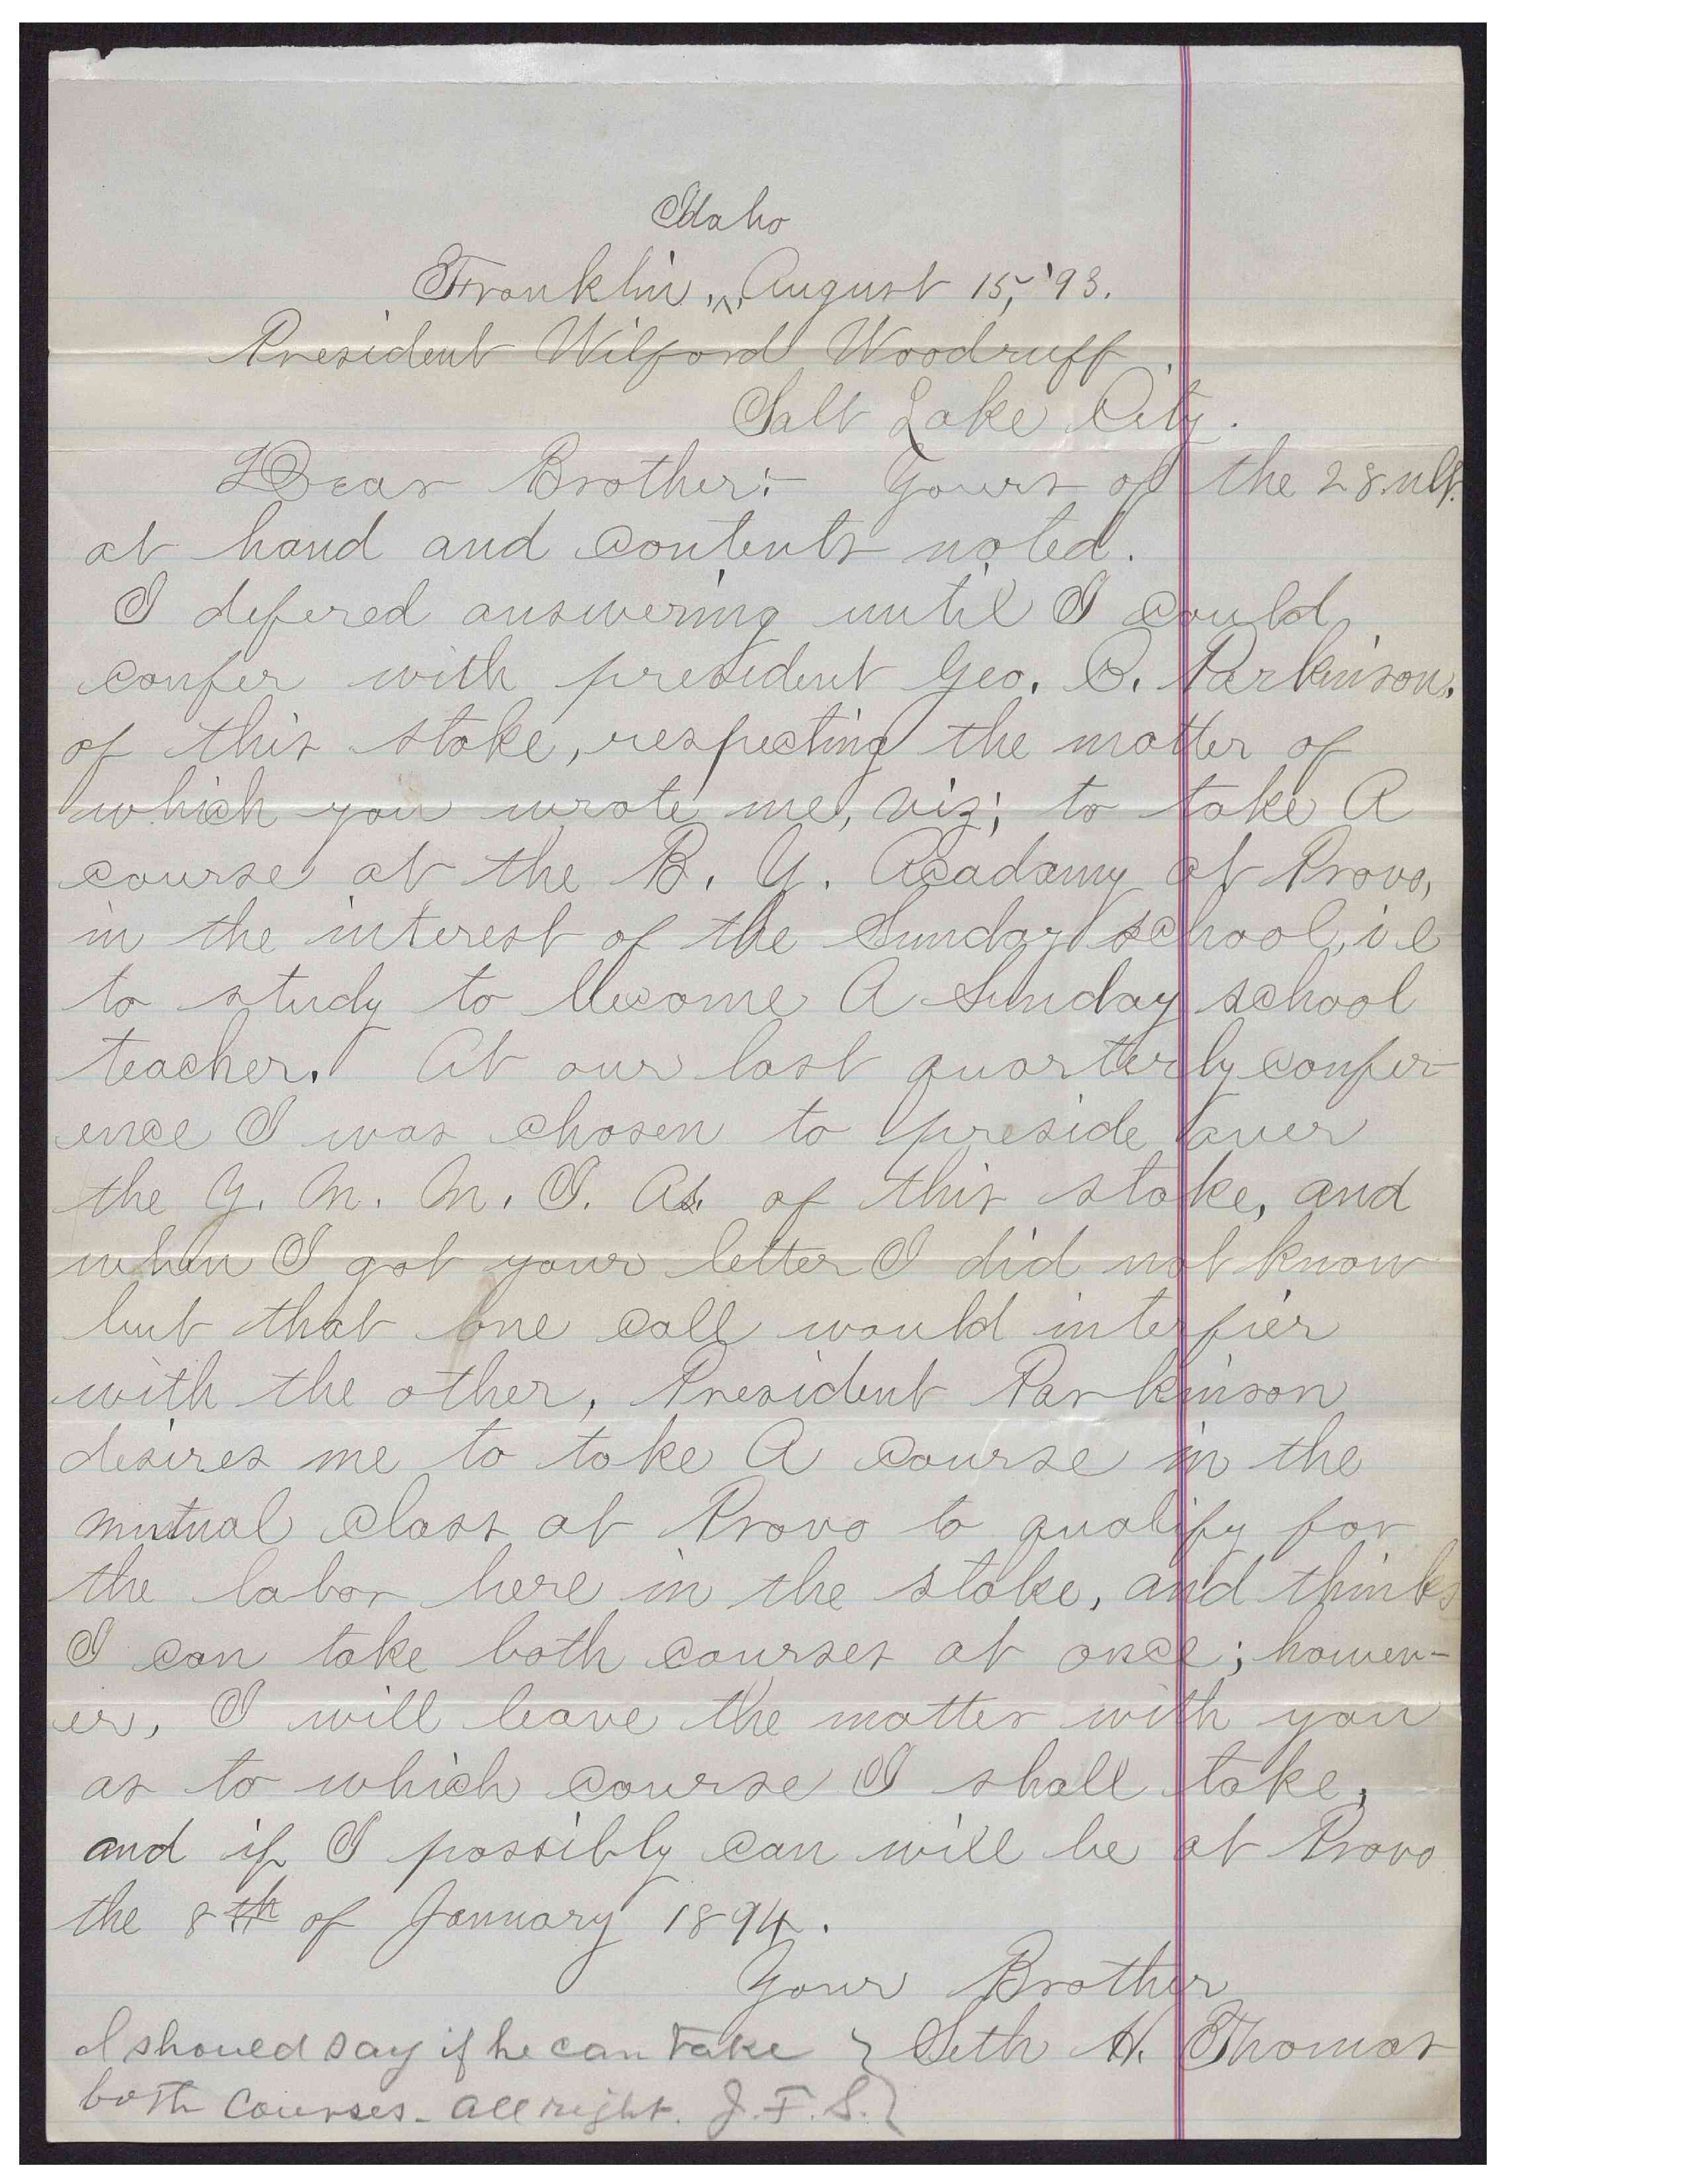 Idaho
Franklin, ^ August 15, '93.
President Wilford Woodruff.
Salt Lake City.
Dear Brother:- Yours of the 28 ult.
at hand and contents noted.
I defered answering until I could
confer with president Geo. C. Parkinson.
of this stake, respecting the matter of
which you wrote me, viz; to take A
course at the B. Y. Acadamy at Provo,
in the interest of the Sunday school, i.e
to study to become A Sunday school
teacher. At our last quarterly confer-
ence I was chosen to preside over
the Y. M. M. I. As. of this stake, and
when I got your letter I did not know
but that one call would interfier
with the other, President Parkinson
desires me to take A course in the
mutual class at Provo to qualify for
the labor here in the stake, and thinks
I can take both courses at once; howev-
er, I will leave the matter with you
as to which course I shall take,
and if I possibly can will be at Provo
the 8th of January 1894.
Your Brother
Seth H. Thomas
I should say if he can take
both courses - all right. J. F. S.